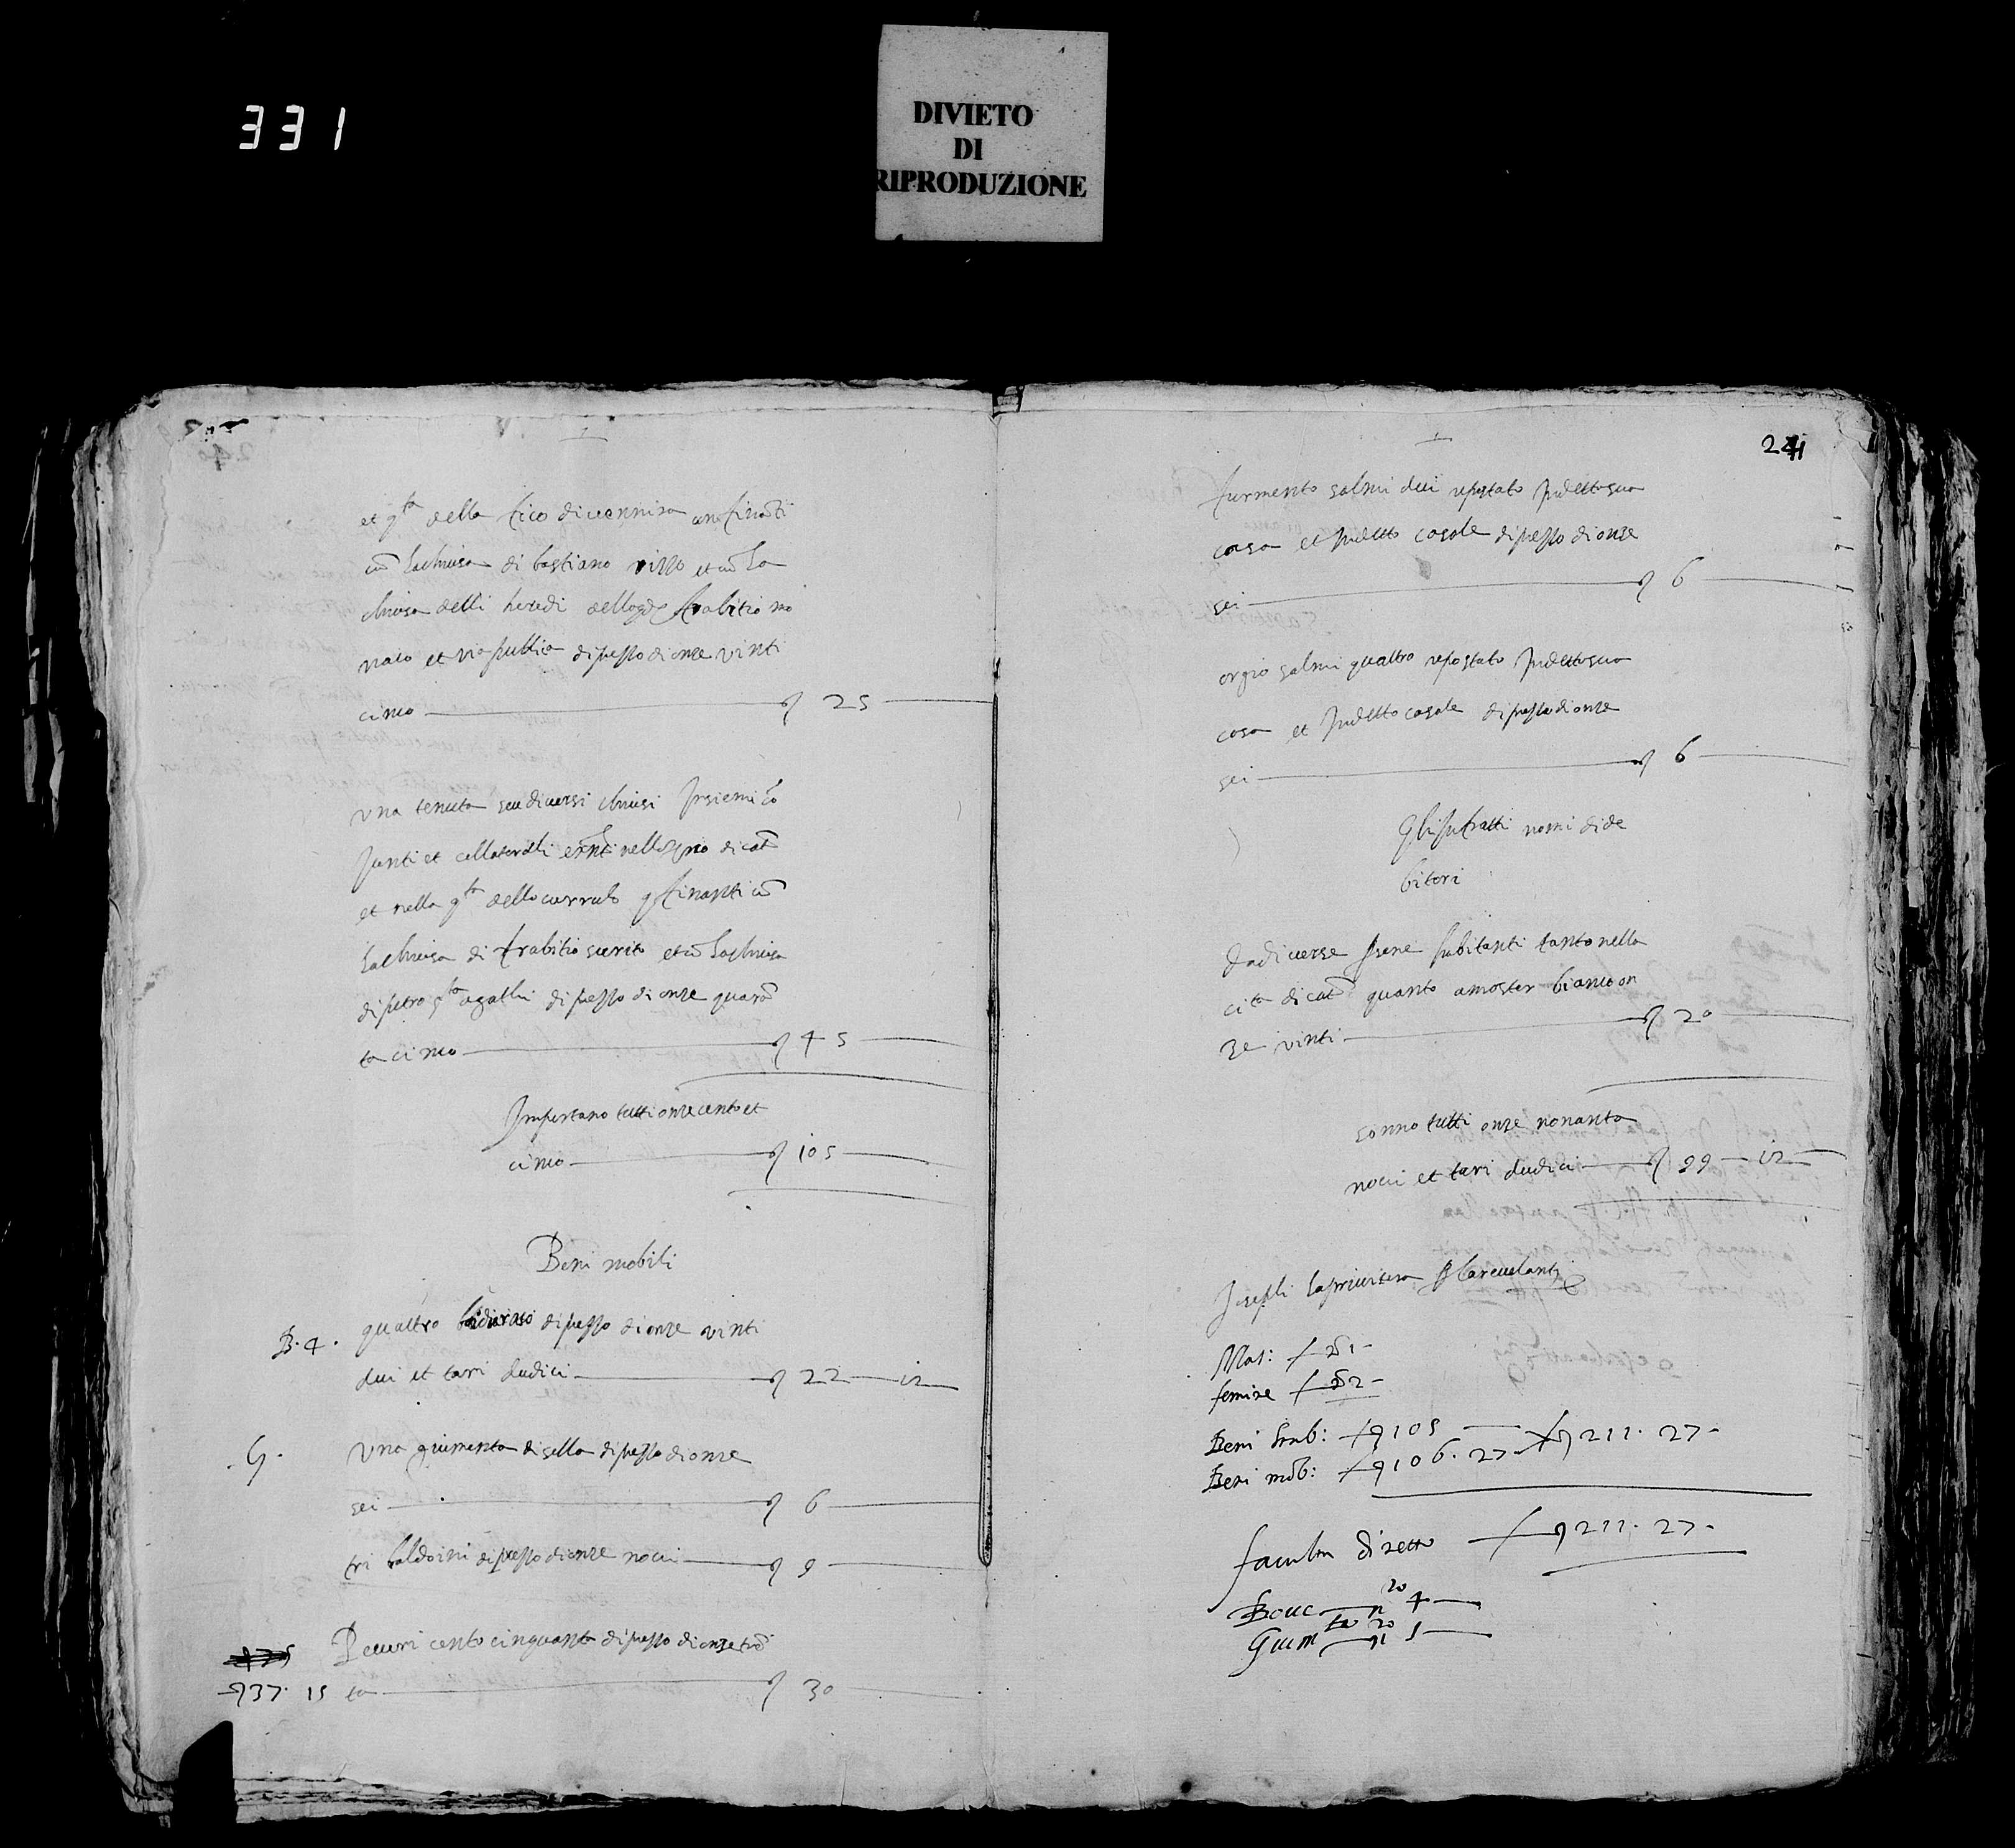 331
DIVIETO
DI
RIPRODUZIONE
et q.ta della fico di confinanti
cu la chiusa di bastiano rizzo et cu la
chiusa delli heredi dello q.o mo
naco et via publica di prezzo di onze vinti
cinco 25
Una tenuta seu diversi chiusi Insiemi co
Junti et collaterali nello di cat.
et nella q.ta dello currulo q.finanti cu
la chiusa di et cu la chiusa
di petro di prezzo di onze quara
ta cinco 45
Importano tutti onze cento et
cinco 105
Beni mobili
B. 4. quattro di prezzo di onze vinti
dui et tari dudici 22 12
G. Una giumenta di sella di prezzo di onze
sei 6
tri baldoini di prezzo di onze novi 9
Pecuri cento cinquanta di prezzo di onze tre
37. 15 ta 30
241
furmento salmi dui repostato In detto sua
casa et In detto casale di prezzo di onze
sei 6
orgio salmi quattro repostato In detto sua
casa et In detto casale di prezzo di onze
sei 6
Gl'infratti nomi di de
bitori
da diverse habitanti tanto nella
cita di cat. quanto a moster bianco on
ze vinti 20
sonno tutti onze nonanta
novi et tari dudici 99 12
Joseph la privitera
Mas: 1
femine 2
Beni stab: 105 211. 27
Beni mob: 106. 27
facultà di netto 211. 27
Bove n.ro 4
Gium.ta n.ro 1